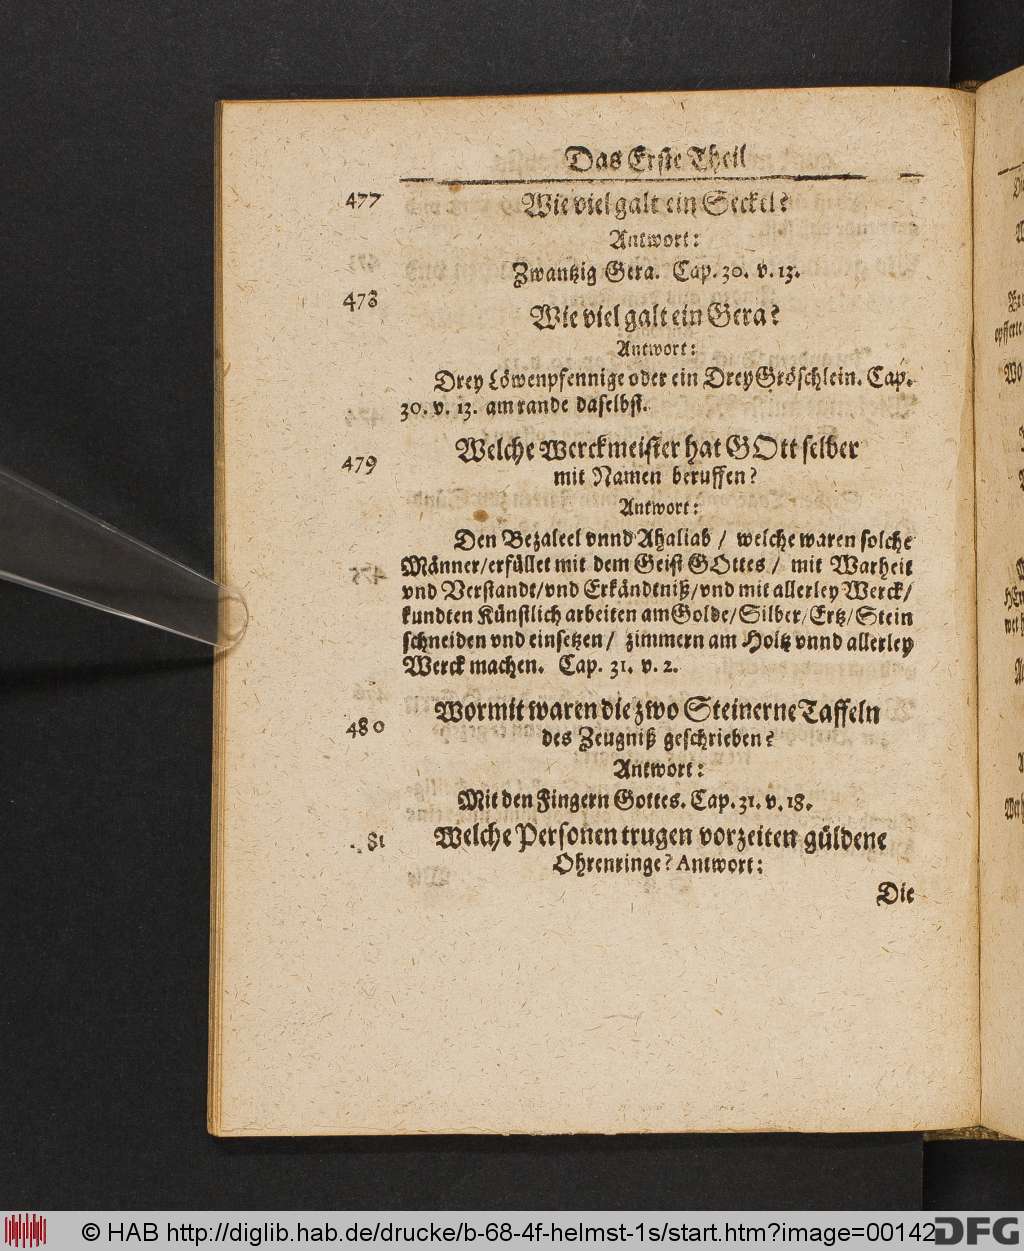 Das Erste Theil
477 Wie viel galt ein Seckel?
Antwort:
Zwantzig Gera. Cap. 30. v. 13.
478 Wie viel galt ein Gera?
Antwort:
Drey Löwenpfennige oder ein Drey Gröschlein. Cap.
30. v. 13. am rande daselbst.
479 Welche Werckmeister hat GOtt selber
mit Namen beruffen?
Antwort:
Den Bezaleel vnnd Ahaliab / welche waren solche
Männer/erfüllet mit dem Geist GOttes / mit Warheit
vnd Verstandt/vnd Erkändtniß/vnd mit allerley Werck/
kundten Künstlich arbeiten am Golde/Silber/Ertz/Stein
schneiden vnd einsetzen / zimmern am Holtz vnnd allerley
Werck machen. Cap. 31. v. 2.
480 Wormit waren die zwo Steinerne Taffeln
des Zeugniß geschrieben?
Antwort:
Mit den Fingern Gottes. Cap. 31. v. 18.
81 Welche Personen trugen vorzeiten güldene
Ohrenringe? Antwort:
Die
© HAB http://diglib.hab.de/drucke/b-68-4f-helmst-1s/start.htm?image=00142
DFG